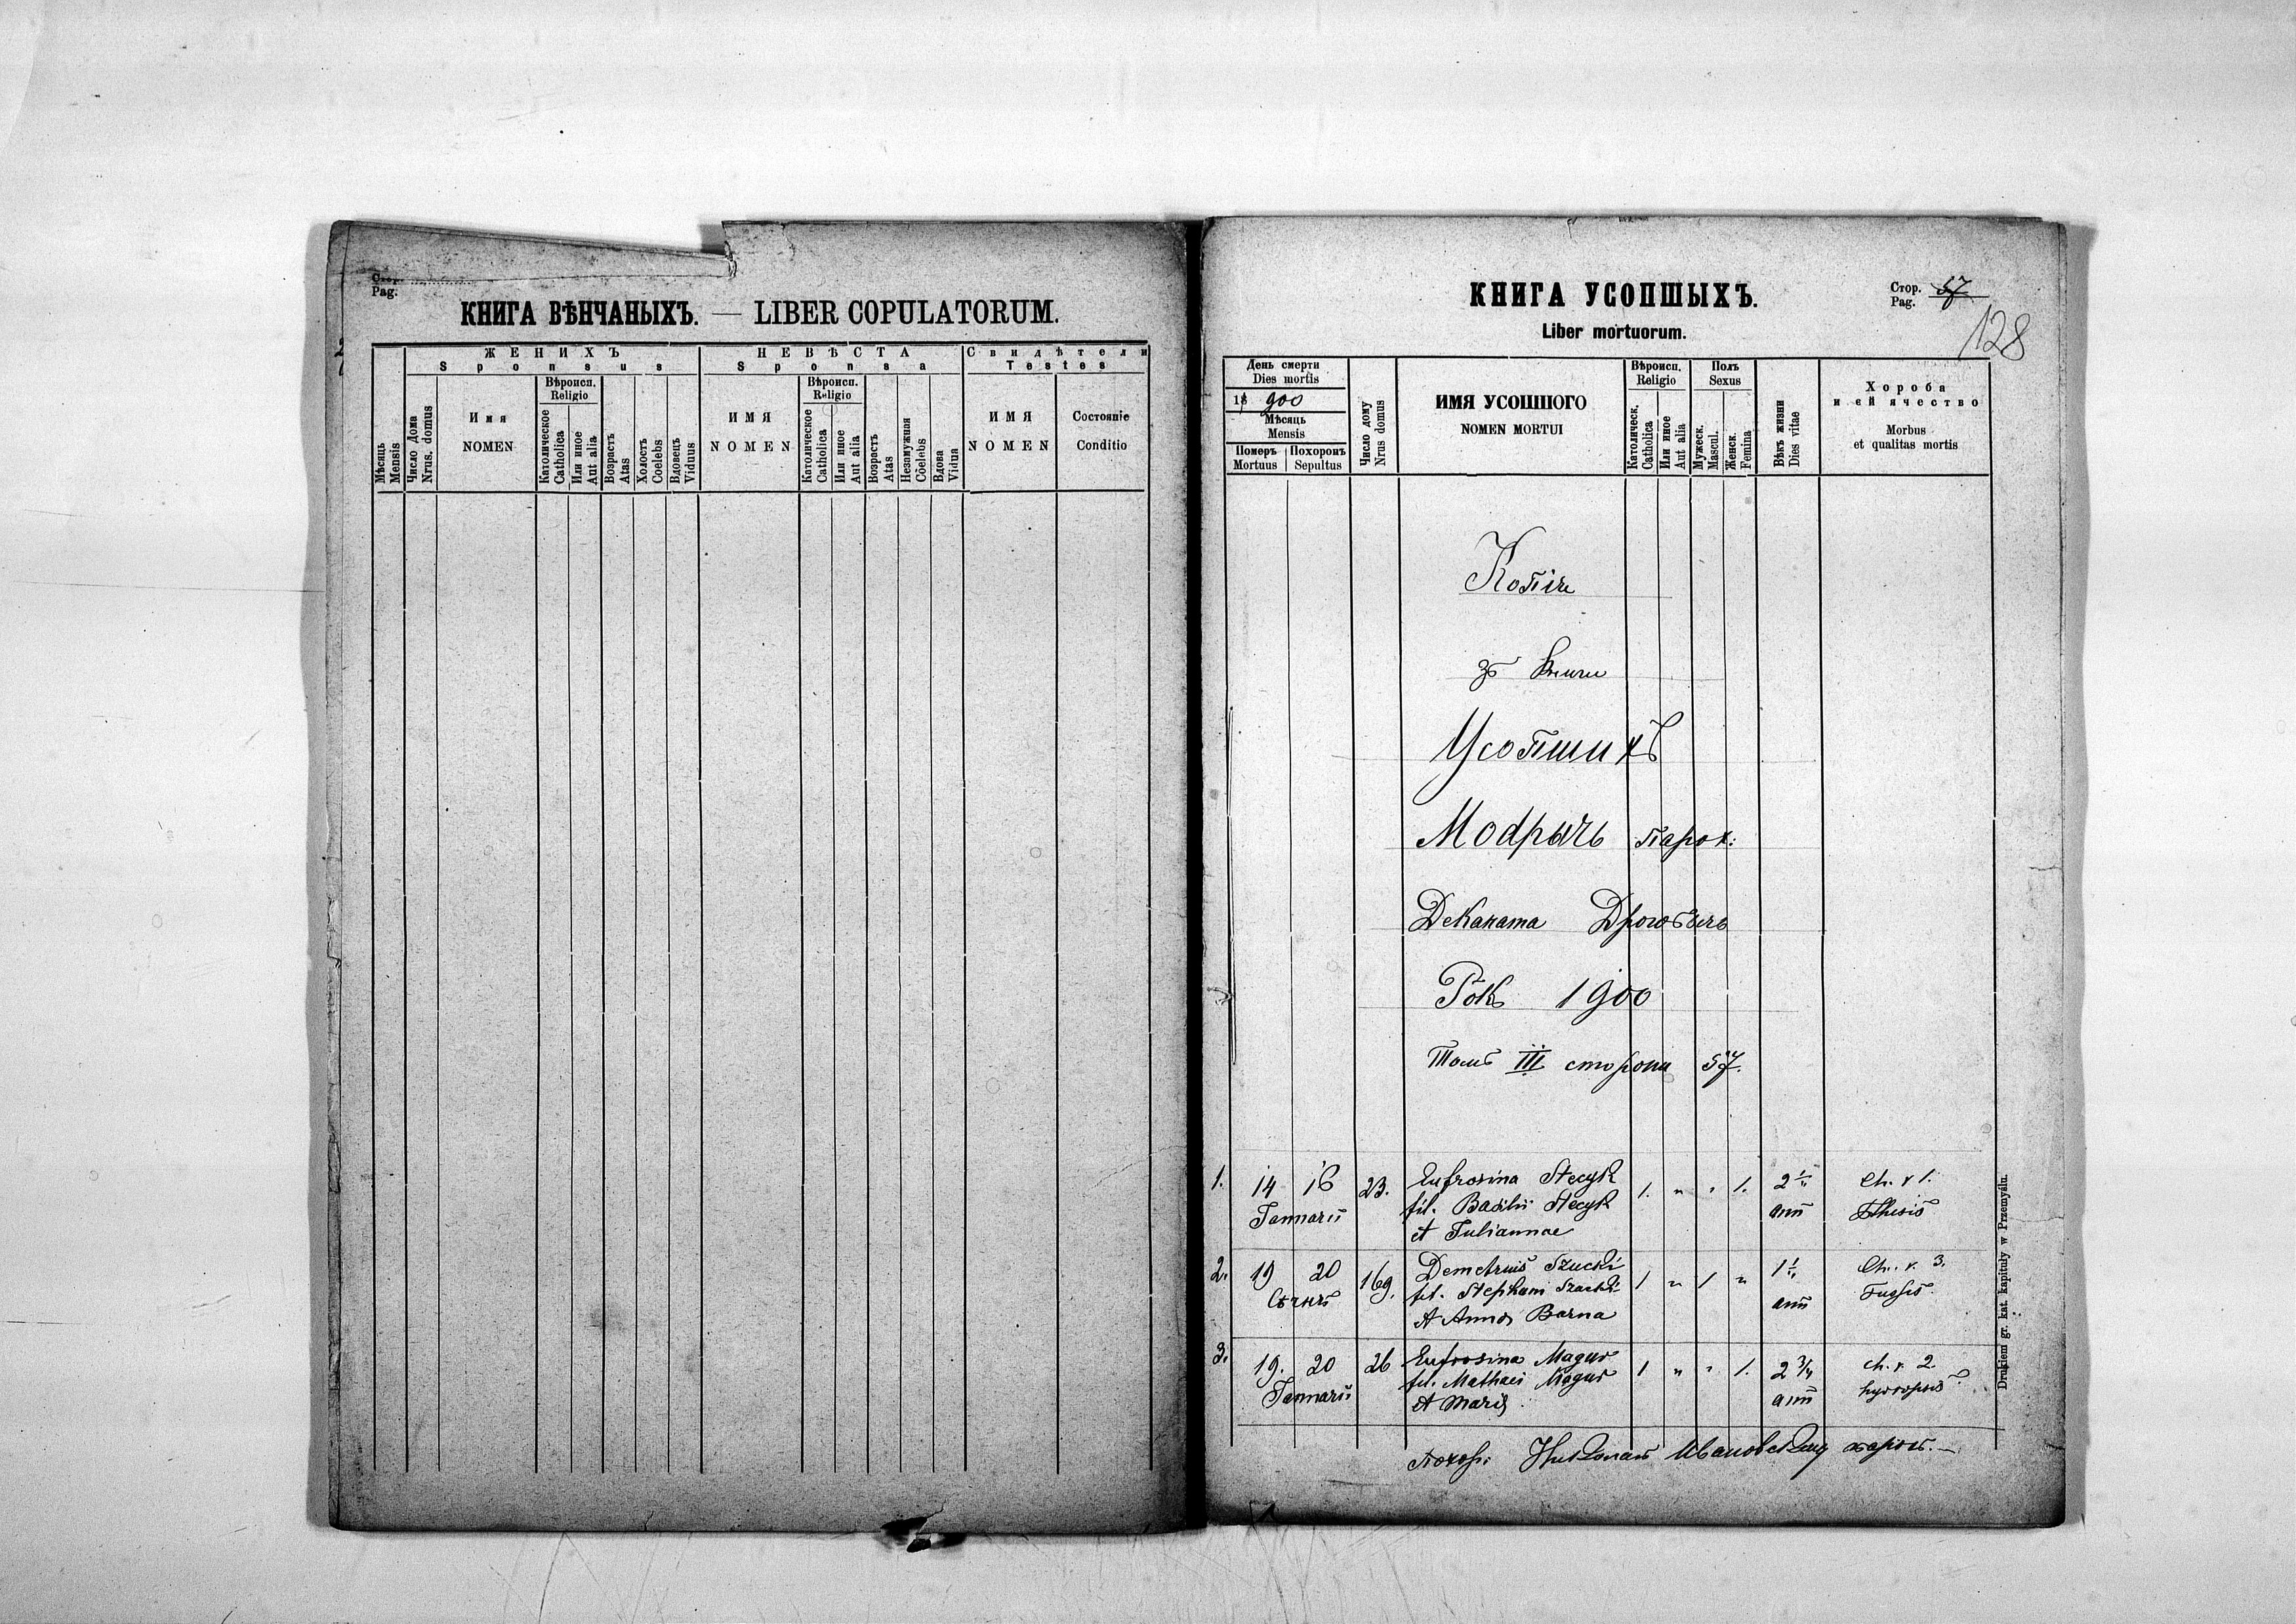 Стор.
Pag.
КНИГА ВѢНЧАНЫХЪ. — LIBER COPULATORUM.
Мѣсяць
Mensis
Число Дома
Nrus. domus
ЖЕНИХЪ
Sponsus
Имя
NOMEN
Вѣроисп.
Religio
Католическое
Catholica
Или иное
Aut alia
Возрастъ
Atas
Холостъ
Coelebs
Вдовецъ
Viduus
НЕВѢСТА
Sponsa
ИМЯ
NOMEN
Вѣроисп.
Religio
Католическое
Catholica
Или иное
Aut alia
Возрастъ
Atas
Незамужная
Coelebs
Вдова
Vidua
Свидѣтели
Testes
ИМЯ
NOMEN
Состояніе
Conditio
КНИГА УСОПШЫХЪ.
Liber mortuorum.
Стор. 57
Pag.
128
День смерти
Dies mortis
18 900
Мѣсяць
Mensis
Померъ
Mortuus
Похоронъ
Sepultus
Число дому
Nrus domus
ИМЯ УСОПШОГО
NOMEN MORTUI
Вѣроисп.
Religio
Католическ.
Catholica
Или иное
Aut alia
Полъ
Sexus
Мужеск.
Mascul.
Женск.
Femina
Вѣкъ жизни
Dies vitae
Хороба
и ей ячество
Morbus
et qualitas mortis
Копія
зъ книги
Усопшихъ
Модрычь парох:
Деканата Дрогобычь
Рокъ 1900
Томъ III сторона 57.
1. 14 16 23. Eufrosina Stecyk 1. " " 1. 2 ch. r 1.
Januarii fil. Basilii Stecyk anni Phtisis
et Juliannae
2. 19 20 169. Demetrius Szucki 1 " 1 " 1 Ch. r. 3.
Сѣчня fil. Stephani Szucki anni Tussis
et Anna Barna
3. 19. 20 26 Eufrosina Magur 1 " " 1. 2 3/4 ch. r. 2
Januarii fil. Mathaei Magur anni hydropsis
et Maria
Похор. Николай Ивановскій парох.
Drukiem gr. kat. kapituły w Przemyślu.